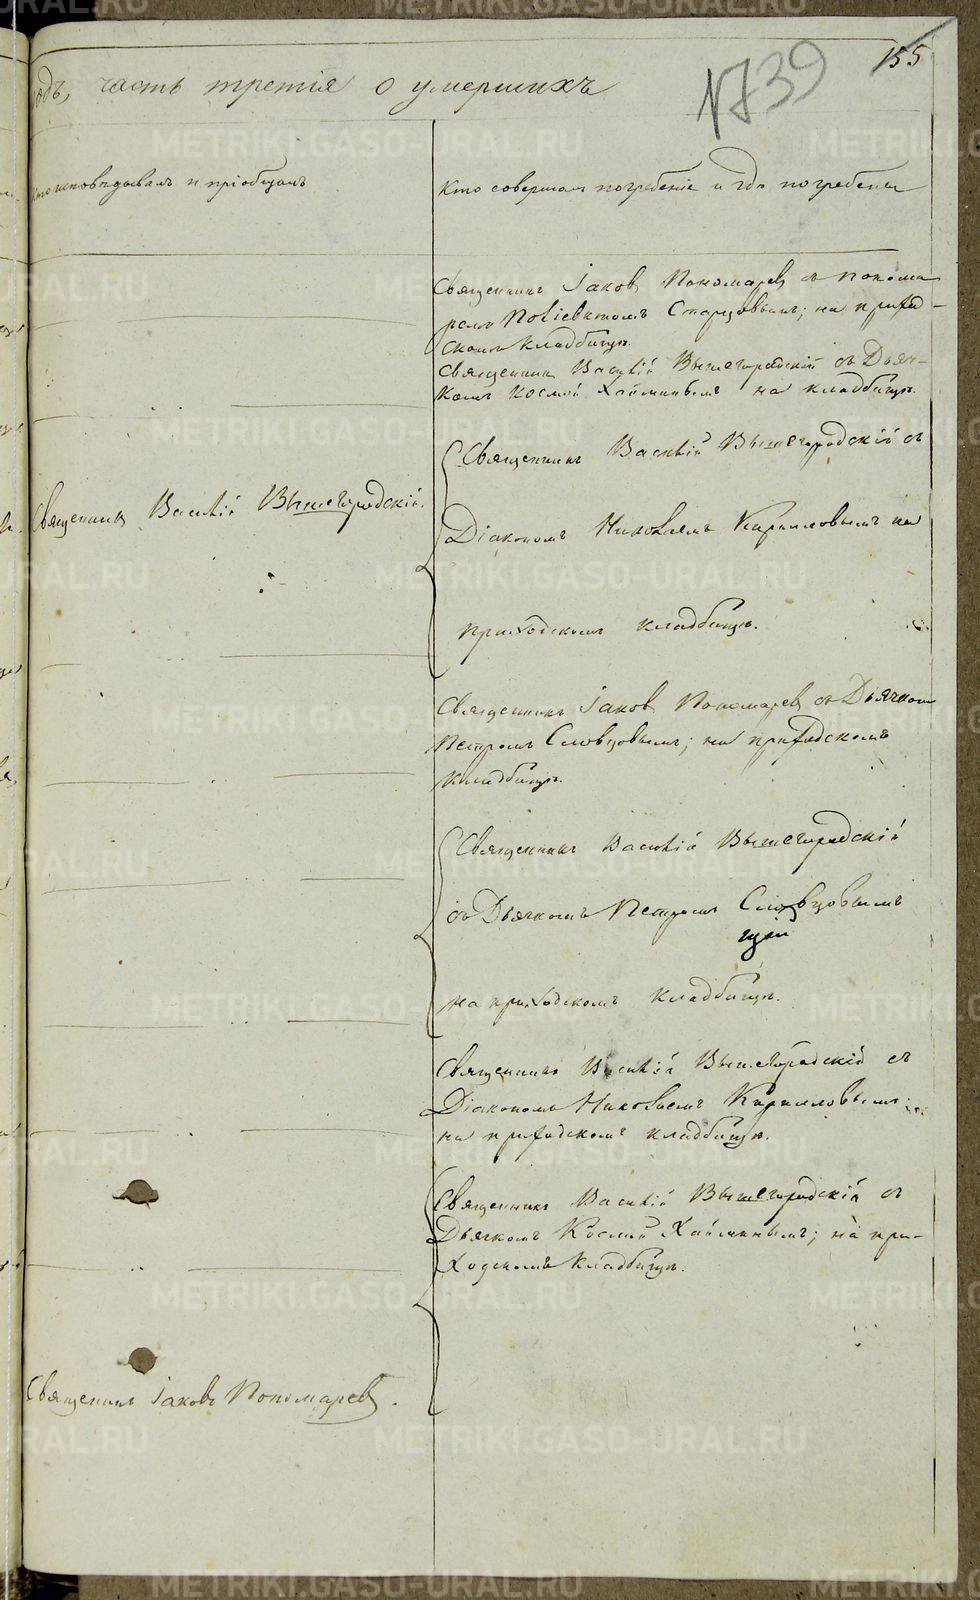 155
N739
одъ, часть третія о умершихъ
исповѣдывалъ и пріобщалъ
Кто совершалъ погребеніе и гдѣ погребены
Священникъ Іаковъ Пономаревъ съ понома
ремъ Поліевктомъ Старцовымъ; на приход-
скомъ кладбищѣ.
Священникъ Василій Вышегородскій съ Дьяч-
комъ Космой Хайминымъ на кладбищѣ.
Священникъ Василій Вышегородскій съ
Священникъ Василій Вышегородскій.
Діакономъ Николаемъ Кирилловымъ на
приходскомъ кладбищѣ.
Священникъ Іаковъ Пономаревъ съ Дьячкомъ
Петромъ Словцовымъ; на приходскомъ
кладбищѣ.
Священникъ Василій Вышегородскій
съ Дьячкомъ Петромъ Словцовымъ
на приходскомъ кладбищѣ.
Священникъ Василій Вышегородскій съ
Діакономъ Николаемъ Кирилловымъ
на приходскомъ кладбищѣ.
Священникъ Василій Вышегородскій съ
Дьячкомъ Космой Хайминымъ; на при-
ходскомъ кладбищѣ.
Священникъ Іаковъ Пономаревъ.
METRIKI.GASO-URAL.RU